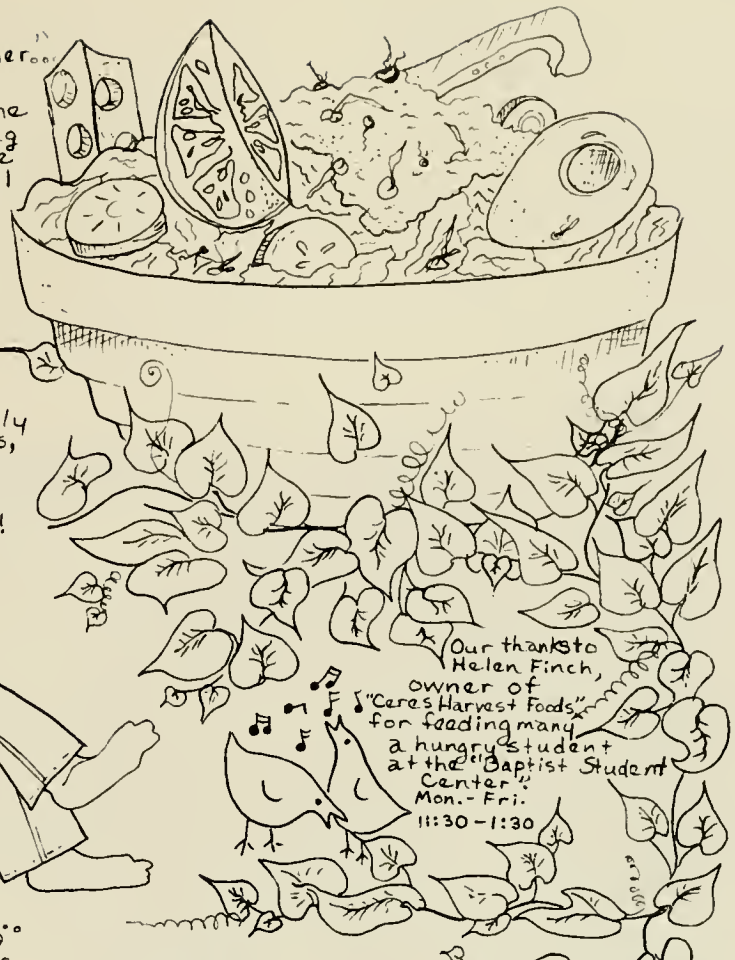 er...
ne
g
e
l
ly
s,
!
Our thanks to
Helen Finch,
owner of
"Ceres Harvest Foods"
for feeding many
a hungry student
at the "Baptist Student
Center".
Mon.-Fri.
11:30-1:30